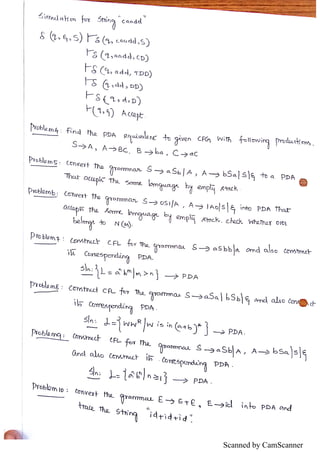 Simulation for String "caadd"
δ (q, ε, S) ⊢ δ(q, caadd, S)
⊢ δ (q, aadd, CD)
⊢ δ (q, add, TDD)
⊢ δ (q, dd, DD)
⊢ δ (q, d, D)
⊢ (q, ε) Accept
Problem4: Find the PDA equivalent to given CFG with following productions.
S→A, A→BC, B→ba, C→ac
Problem5: Convert the grammar S→aSb|A, A→bSa|S|ε to a PDA
That accepts The same language by empty stack.
Problem6: Convert the grammar S→0S1|A, A→1A0|S|ε into PDA that
accepts the same language by empty stack. check whether
belongs to N(M).
Problem7: construct CFL for the grammar S→aSbb|a and also construct
its corresponding PDA.
Sln: { L = aⁿbᵐ | m>n } → PDA
Problem8: Construct CFL for the grammar S→aSa|bSb|ε and also
its corresponding PDA.
Sln: L={WWᴿ|W is in (a+b)*} → PDA.
Problem9: construct CFL for the grammar S→aSb|A, A→bSa|S|ε
and also construct its corresponding PDA.
Sln: L={aⁿbⁿ|n≥1} → PDA.
Problem10: Convert the grammar E→E+E, E→id into PDA and
trace the string "id+id+id".
Scanned by CamScanner